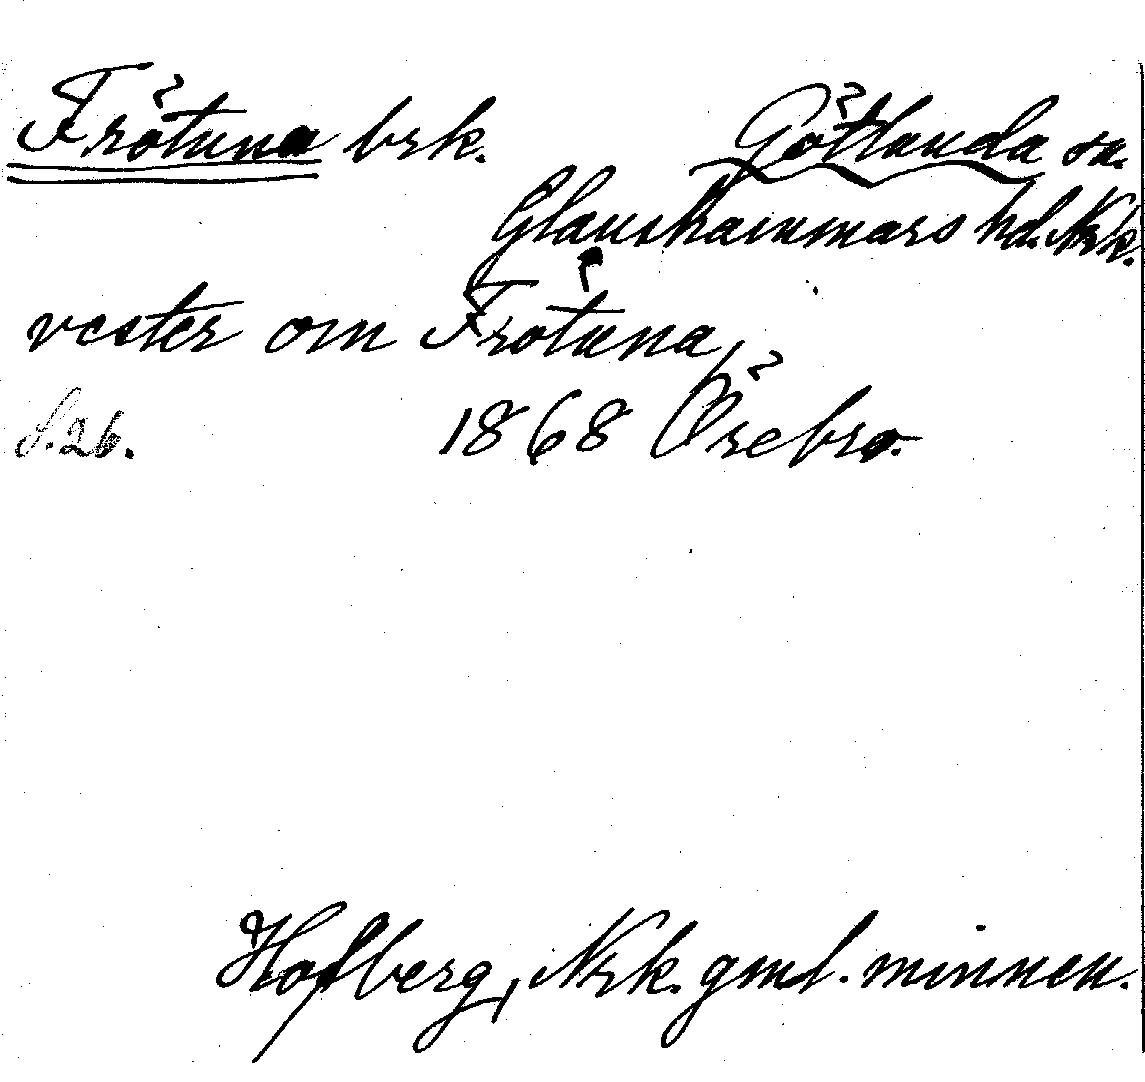 Frötuna brk. Götlanda sn.
Glanshammars hd. Nrk.
vester om Frötuna,
S. 26. 1868 Örebro.
Hofberg, Nrk. gml. minnen.